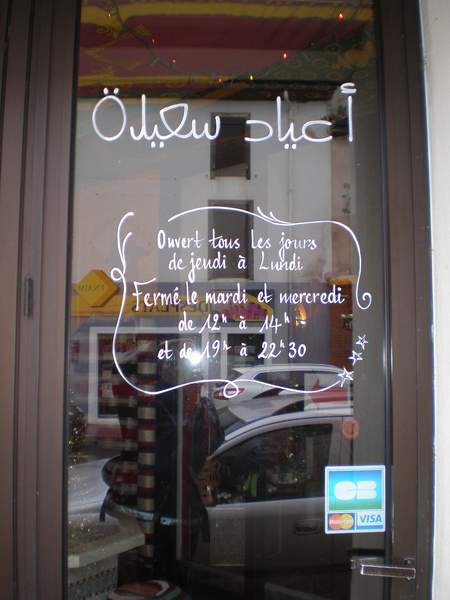 أعياد سعيدة
Ouvert tous les jours
de jeudi à Lundi
Fermé le mardi et mercredi
de 12h à 14h
et de 19h à 22h30
CB
MasterCard VISA